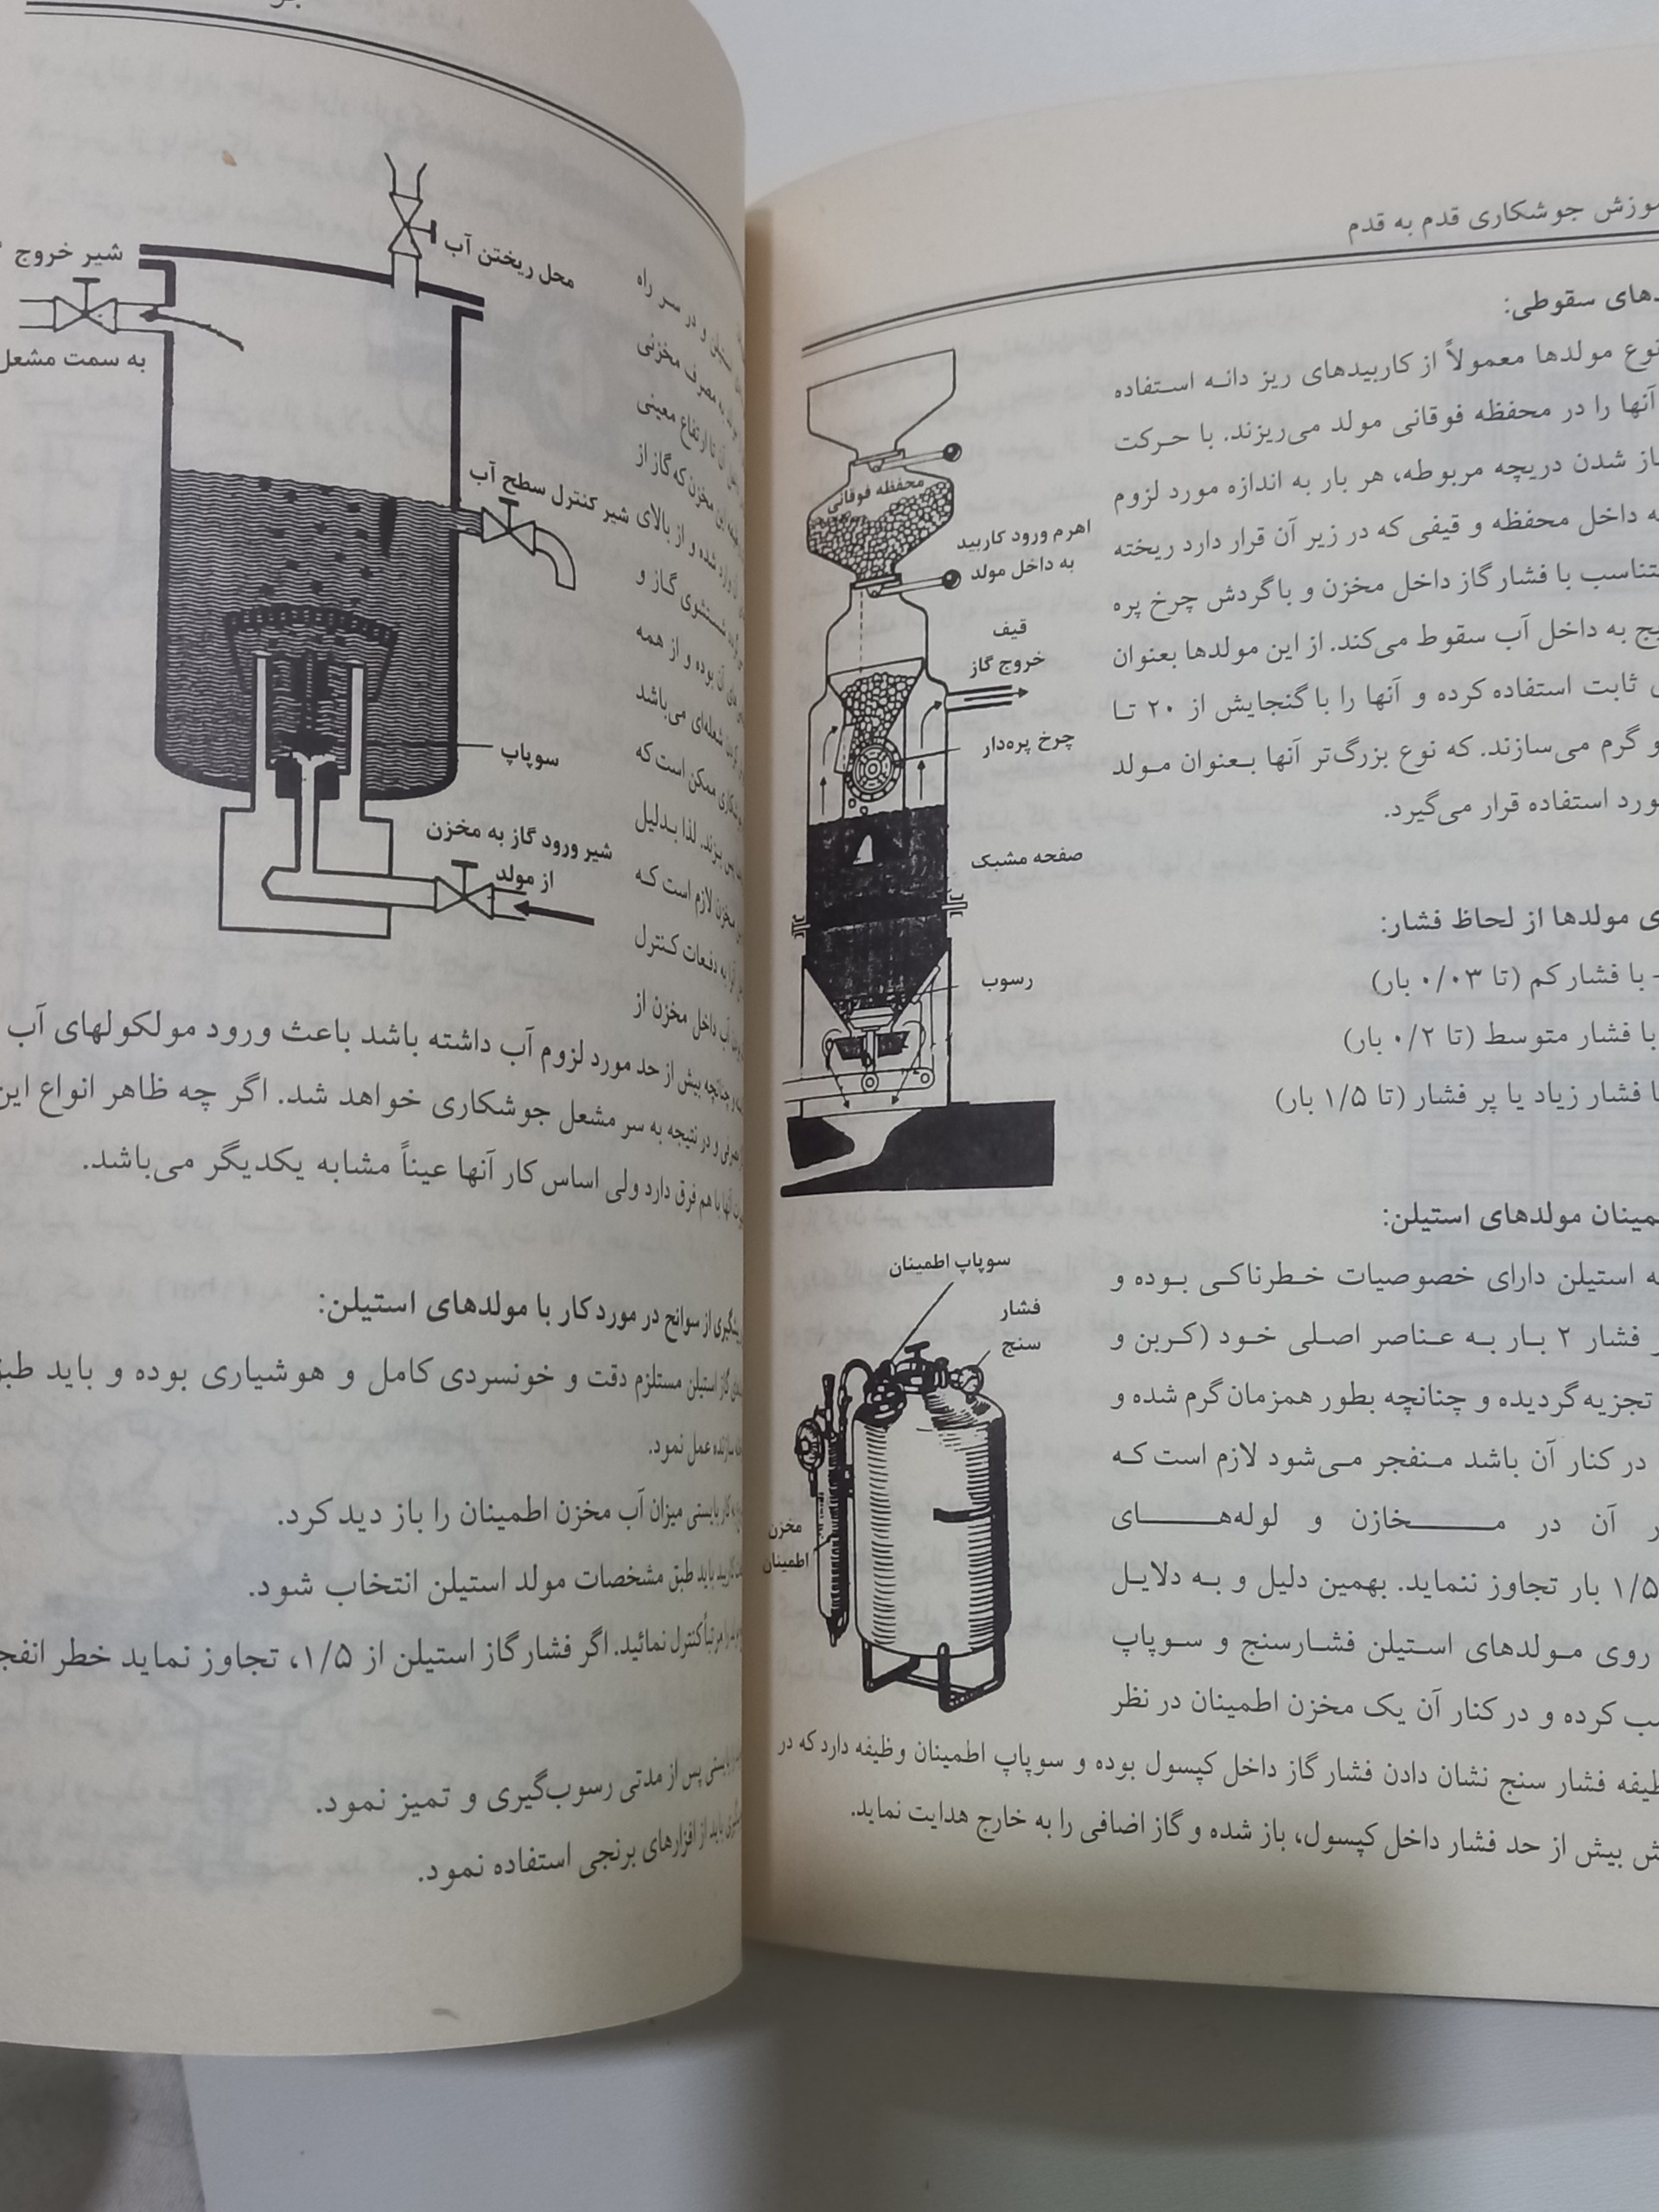 آموزش جوشکاری قدم به قدم
مولدهای سقوطی:
نوع مولدها معمولاً از کاربیدهای ریز دانه استفاده
آنها را در محفظه فوقانی مولد می‌ریزند. با حرکت
باز شدن دریچه مربوطه، هر بار به اندازه مورد لزوم
به داخل محفظه و قیفی که در زیر آن قرار دارد ریخته
متناسب با فشار گاز داخل مخزن و با گردش چرخ پره
به داخل آب سقوط می‌کند. از این مولدها بعنوان
ثابت استفاده کرده و آنها را با گنجایش از ۲۰ تا
گرم می‌سازند. که نوع بزرگ‌تر آنها بعنوان مولد
مورد استفاده قرار می‌گیرد.
محفظه فوقانی
اهرم ورود کاربید
به داخل مولد
قیف
خروج گاز
چرخ پره‌دار
صفحه مشبک
رسوب
مولدها از لحاظ فشار:
- با فشار کم (تا ۰/۰۳ بار)
با فشار متوسط (تا ۰/۲ بار)
با فشار زیاد یا پر فشار (تا ۱/۵ بار)
اطمینان مولدهای استیلن:
استیلن دارای خصوصیات خطرناکی بوده و
فشار ۲ بار به عناصر اصلی خود (کربن و
تجزیه گردیده و چنانچه بطور همزمان گرم شده و
در کنار آن باشد منفجر می‌شود لازم است که
آن در مخازن و لوله‌های
۱/۵ بار تجاوز ننماید. بهمین دلیل و به دلایل
روی مولدهای استیلن فشارسنج و سوپاپ
کرده و در کنار آن یک مخزن اطمینان در نظر
وظیفه فشار سنج نشان دادن فشار گاز داخل کپسول بوده و سوپاپ اطمینان وظیفه دارد که در
بیش از حد فشار داخل کپسول، باز شده و گاز اضافی را به خارج هدایت نماید.
سوپاپ اطمینان
فشار
سنج
مخزن
اطمینان
محل ریختن آب
شیر خروج
به سمت مشعل
شیر کنترل سطح آب
سوپاپ
شیر ورود گاز به مخزن
از مولد
و در سر راه
به مصرف مخزنی
آن تا ارتفاع معینی
این مخزن که گاز از
وارد شده و از بالای
شستشوی گاز و
آن بوده و از همه
شعله‌ای می‌باشد
ممکن است که
بزند. لذا بدلیل
مخزن لازم است که
به دفعات کنترل
آب داخل مخزن از
چنانچه بیش از حد مورد لزوم آب داشته باشد باعث ورود مولکولهای آب
و در نتیجه به سر مشعل جوشکاری خواهد شد. اگر چه ظاهر انواع این
آنها با هم فرق دارد ولی اساس کار آنها عیناً مشابه یکدیگر می‌باشد.
پیشگیری از سوانح در مورد کار با مولدهای استیلن:
گاز استیلن مستلزم دقت و خونسردی کامل و هوشیاری بوده و باید طبق
سازنده عمل نمود.
بایستی میزان آب مخزن اطمینان را باز دید کرد.
باید طبق مشخصات مولد استیلن انتخاب شود.
را مرتباً کنترل نمائید. اگر فشار گاز استیلن از ۱/۵، تجاوز نماید خطر انفجار
بایستی پس از مدتی رسوب‌گیری و تمیز نمود.
باید از افزارهای برنجی استفاده نمود.